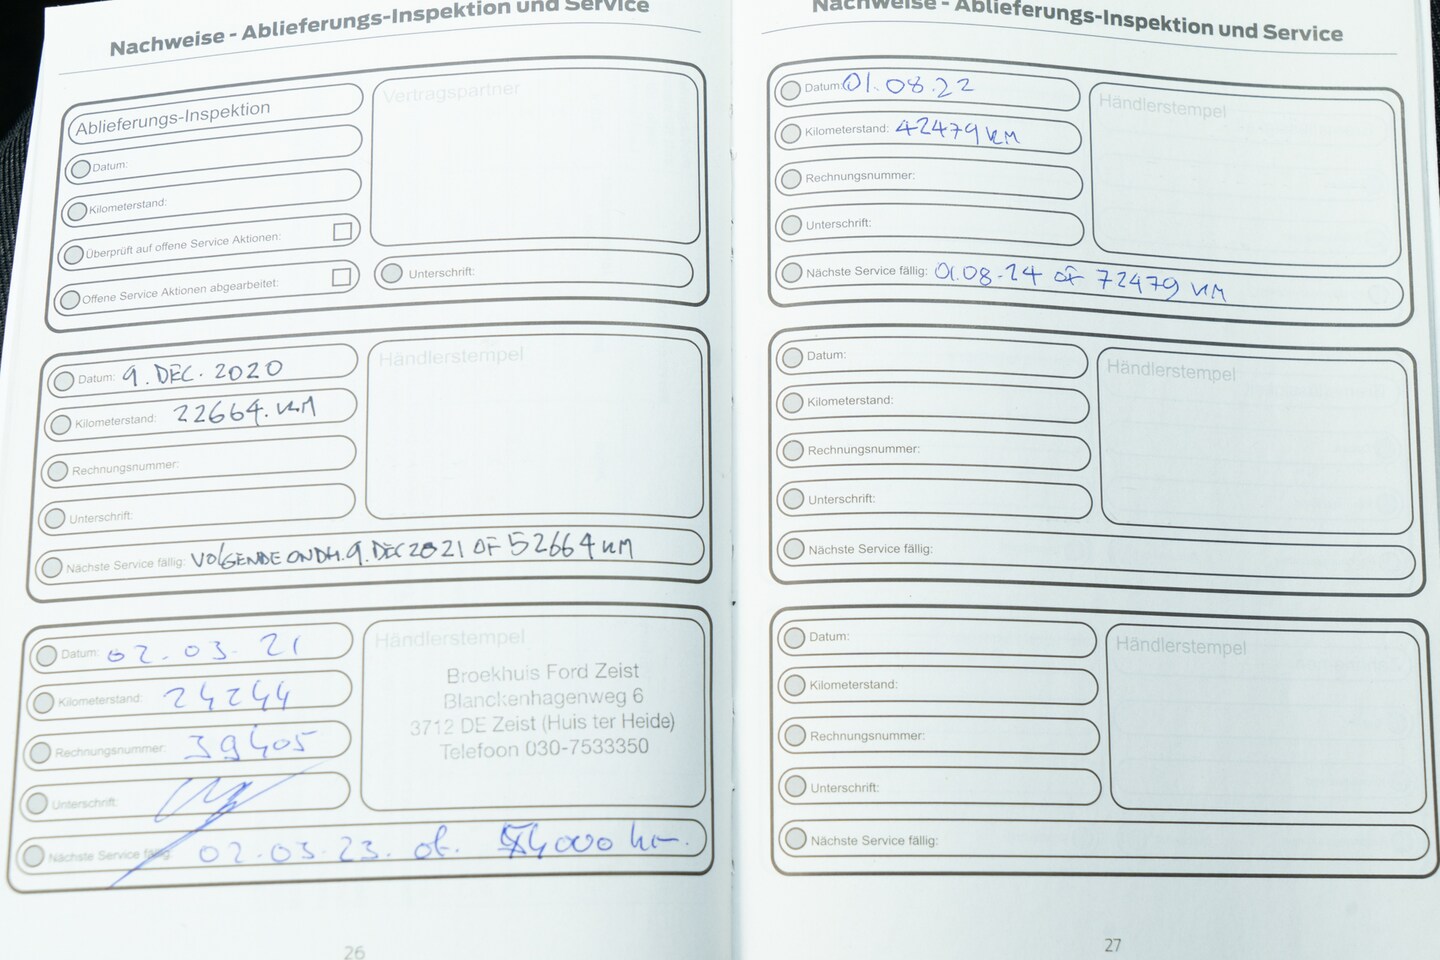 Nachweise - Ablieferungs-Inspektion und Service
Ablieferungs-Inspektion
Vertragspartner
Datum:
Kilometerstand:
Überprüft auf offene Service Aktionen:
Offene Service Aktionen abgearbeitet:
Unterschrift:
Datum: 9. DEC. 2020
Händlerstempel
Kilometerstand: 22664. KM
Rechnungsnummer:
Unterschrift:
Nächste Service fällig: VOLGENDE ONDH. 9. DEC 2021 OF 52664 KM
Datum: 02.03.21
Händlerstempel
Kilometerstand: 24244
Rechnungsnummer: 39405
Unterschrift:
Broekhuis Ford Zeist
Blanckenhagenweg 6
3712 DE Zeist (Huis ter Heide)
Telefoon 030-7533350
Nächste Service fällig: 02.03.23. of. 54000 km.
26
Nachweise - Ablieferungs-Inspektion und Service
Datum: 01.08.22
Händlerstempel
Kilometerstand: 42479 KM
Rechnungsnummer:
Unterschrift:
Nächste Service fällig: 01.08.24 OF 72479 KM
Datum:
Händlerstempel
Kilometerstand:
Rechnungsnummer:
Unterschrift:
Nächste Service fällig:
Datum:
Händlerstempel
Kilometerstand:
Rechnungsnummer:
Unterschrift:
Nächste Service fällig:
27